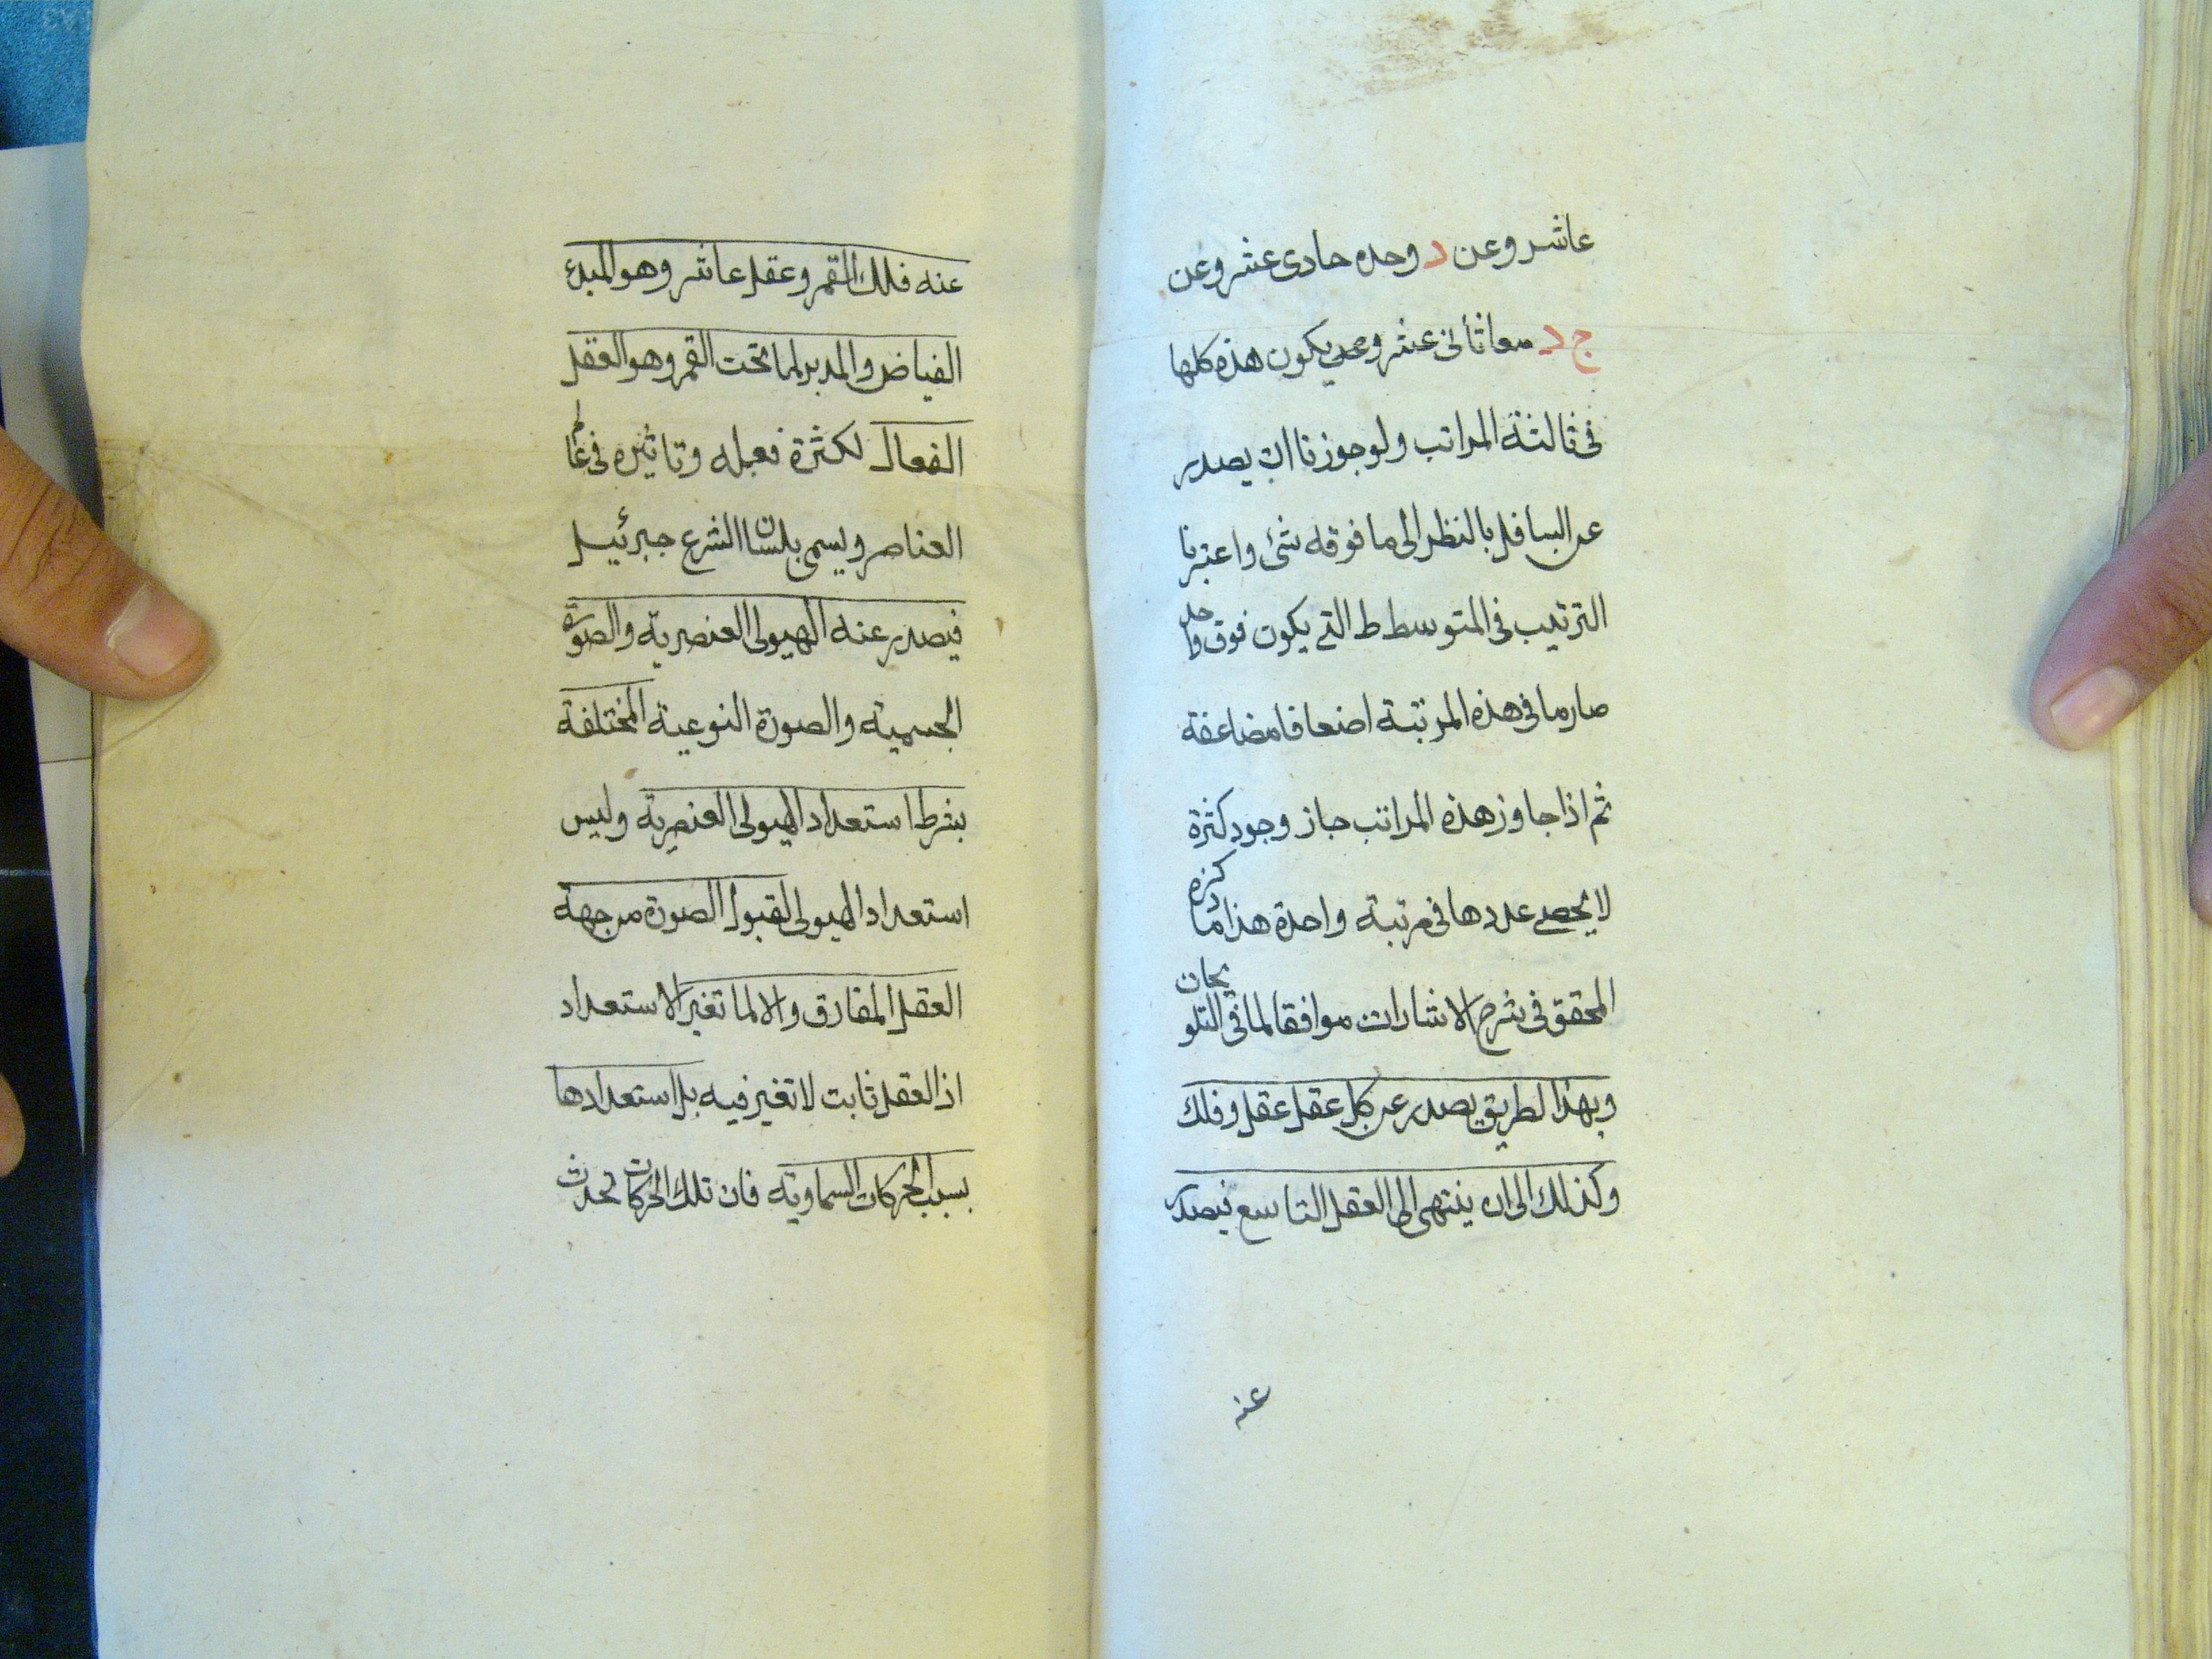 عاشر وعن د وحده حادى عشر وعن
ج د معا ثانى عشر وحـ يكون هذه كلها
فى ثالثة المراتب ولو جوزنا ان يصدر
عن السافل بالنظر الى ما فوقه شئ واعتبرنا
الترتيب فى المتوسط ط التى يكون فوق واحد
صار ما فى هذه المرتبة اضعافا مضاعفة
ثم اذا جاوز هذه المراتب جاز وجود كثرة
لا يحصى عددها فى مرتبة واحدة هذا ما ذكره
المحقق فى شرح الاشارات موافقا لما فى التلويحان
وبهذا لطريق يصدر عن كل عقل عقل وفلك
وكذلك الى ان ينتهى الى العقل التاسع فيصدر
عنه
عنه فلك القمر وعقل عاشر وهو المبدء
الفياض والمدبر لما تحت القمر وهو العقل
الفعال لكثرة فعله وتاثيره فى عالم
العناصر ويسمى بلسان الشرع جبرئيل
فيصدر عنه الهيولى العنصرية والصورة
الجسمية والصورة النوعية المختلفة
بشرط استعداد الهيولى العنصرية وليس
استعداد الهيولى لقبول الصورة من جهة
العقل المفارق والا لما تغير الاستعداد
اذ العقل ثابت لا تغير فيه بل استعدادها
بسبب الحركات السماوية فان تلك الحركات تحدث